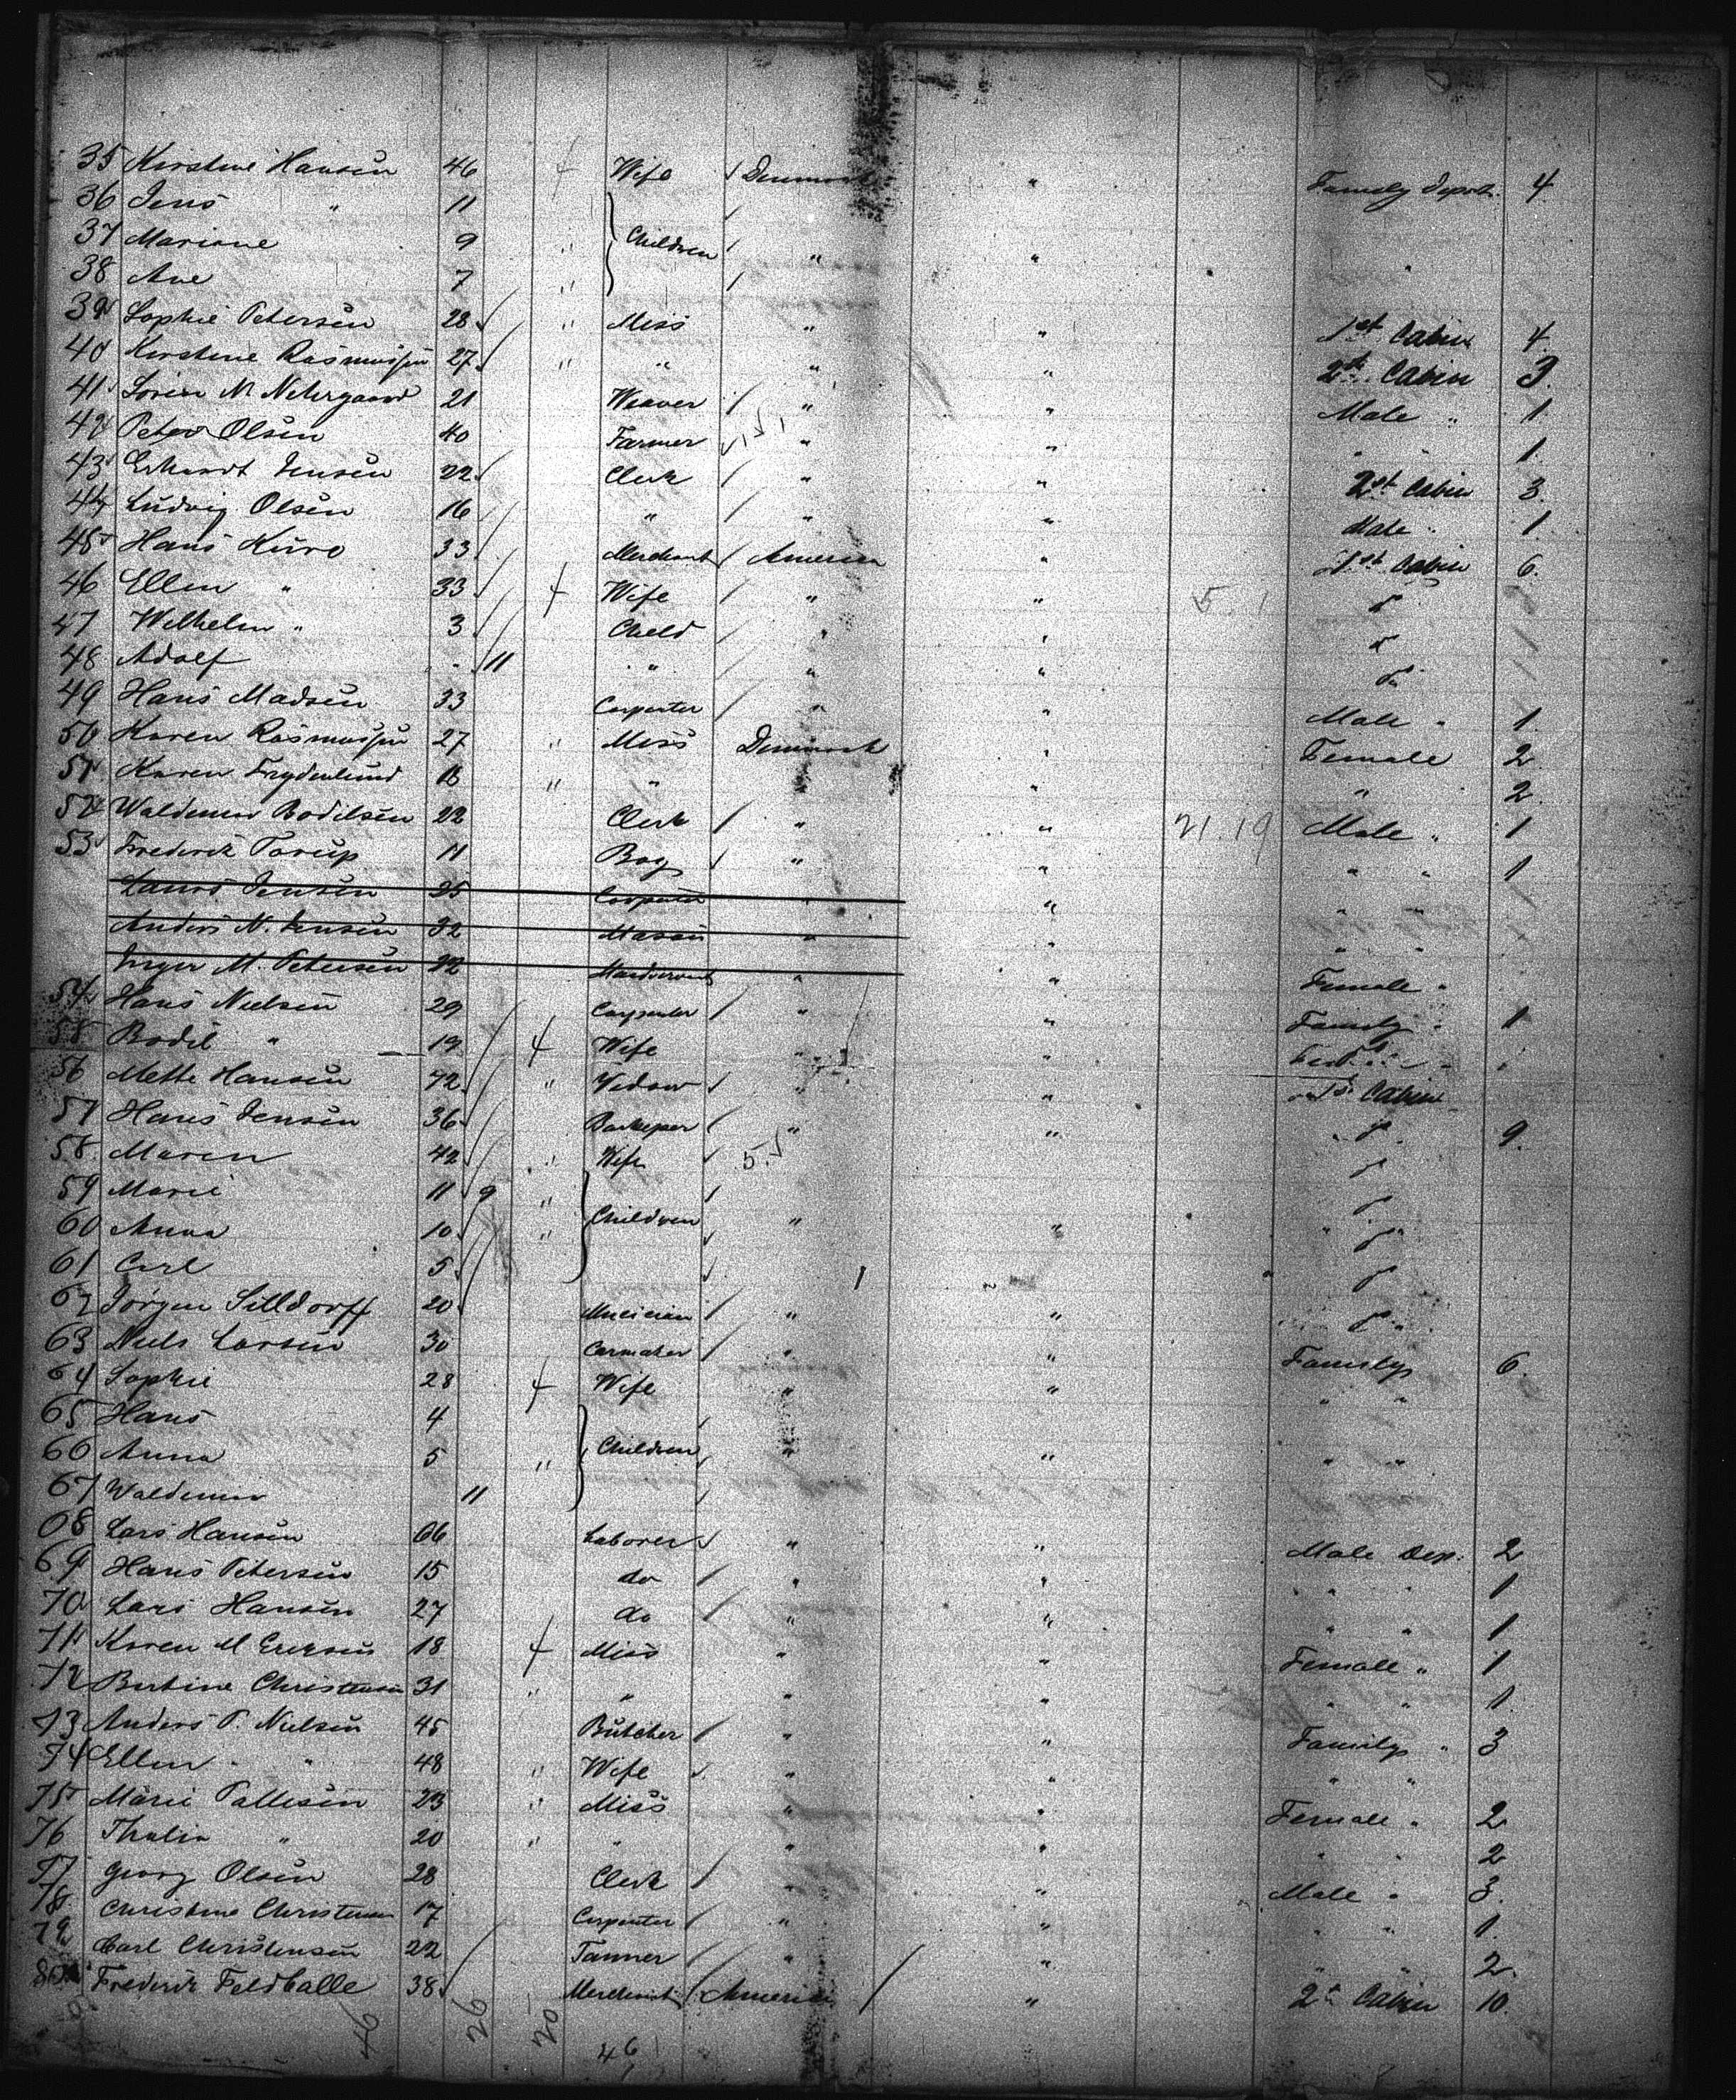 35 Kirstine Hansen 46 Wife Denmark " Family Depart. 4
36 Jens " 11
37 Mariane 9 " Children " " "
38 Ane 7 "
39 Sophie Petersen 28 " Miss " " 1st Cabin 4
40 Kirstine Rasmussen 27 " " " " 2st Cabin 3.
41 Sören M Nehrgaard 21 Weaver " " Male " 1.
42 Peter Olsen 40 Farmer " " " " 1.
43 Erhardt Jensen 22 Clerk " " 2st Cabin 3.
44 Ludvig Olsen 16 " " " Male " 1.
45 Hans Kuro 33 Merchant America " 1st Cabin 6.
46 Ellen " 33 Wife " " 5.
47 Wilhelm " 3 Child " "
48 Adolf " 11 " " "
49 Hans Madsen 33 Carpenter " " Male " 1.
50 Karen Rasmussen 27 " Miss Denmark " Female 2.
51 Karen Frydenlund 18 " " " " " 2.
52 Waldemar Bodilsen 22 Clerk " " 21.19 Male " 1
53 Frederik Torup 11 Boy " " " " 1
Laurs Jensen 25 Carpenter " " " "
Anders N. Jensen 32 Mason " " " "
Inger M. Petersen 22 " " Female "
54 Hans Nielsen 29 Carpenter " " Family " 1
55 Bodil " 19 Wife " "
56 Mette Hansen 72 " Vidow " " 1st Cabin
57 Hans Jensen 36 Barkeper " " 9.
58. Maren 42 " Wife 5.
59 Marie 11 9 "
60 Anna 10 " Children " "
61 Carl 5
62 Jörgen Silldorff 20 Mucician " "
63 Niels Larsen 30 Carmaker " " Family 6.
64 Sophie 28 Wife " " " "
65 Hans 4
66 Anna 5 " Children " " " "
67 Waldemar 11
68 Lars Hansen 66 Laborer " " Male Dep. 2
69 Hans Petersen 15 do " " " " 1
70 Lars Hansen 27 do " " " " 1
71 Karen M Ericksen 18 Miss " " Female " 1
72 Bertine Christensen 31 " " " " " " 1.
73 Anders P. Nielsen 45 Butcher " " Family " 3
74 Ellen " " 48 " Wife " " " "
75 Marie Pallesen 23 " Miss " " Female " 2
76 Thalia " 20 " " " " " 2
77 Georg Olsen 28 Clerk " " Male " 3.
78. Christine Christensen 17 Carpenter " " " " 1.
79 Carl Christensen 22 Tanner " " " " 2.
80 Frederik Feldballe 38 Merchant America " 2st Cabin 10.
46 26 20
46